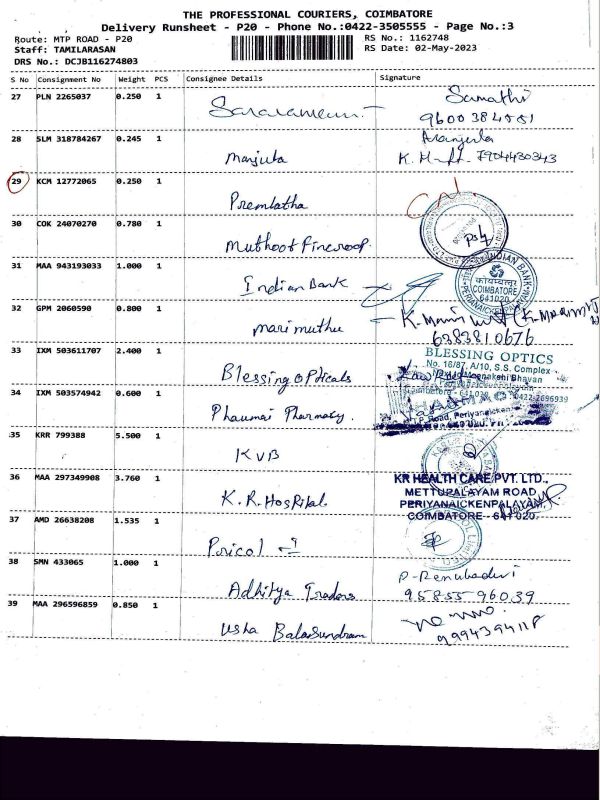 THE PROFESSIONAL COURIERS, COIMBATORE
Delivery Runsheet - P20 - Phone No.:0422-3505555 - Page No.:3
Route: MTP ROAD - P20
RS No.: 1162748
Staff: TAMILARASAN
RS Date: 02-May-2023
DRS No.: DCJB116274803
S No Consignment No Weight PCS Consignee Details Signature
27 PLN 2265037 0.250 1
Sumathi
28 SLM 318784267 0.245 1 Manjula
7904430343
29 KCM 12772065 0.250 1 Premlatha
30 COK 24070270 0.780 1 Muthoot Fincroop.
31 MAA 943193033 1.000 1 Indian Bank
INDIAN BANK
कोयम्बत्तूर
COIMBATORE
641020
PERIYANAICKENPALAYAM
32 GPM 2060590 0.800 1 marimuthu
6383810676
33 IXM 503611707 2.400 1 Blessing opticals
BLESSING OPTICS
No. 16/87, A/10, S.S. Complex
Bhavan
0422-2696939
34 IXM 503574942 0.600 1 Pharmacy.
Road, Periyanaicken
35 KRR 799388 5.500 1 KVB
36 MAA 297349908 3.760 1 K.R. Hospital
KR HEALTH CARE PVT. LTD.,
METTUPALAYAM ROAD,
PERIYANAICKENPALAYAM,
COIMBATORE - 641 020.
37 AMD 26638208 1.535 1 Pricol -
38 SMN 433065 1.000 1 Adhitya Traders
P-Renukadevi
95855 96039
39 MAA 296596859 0.850 1 Usha Balasundram